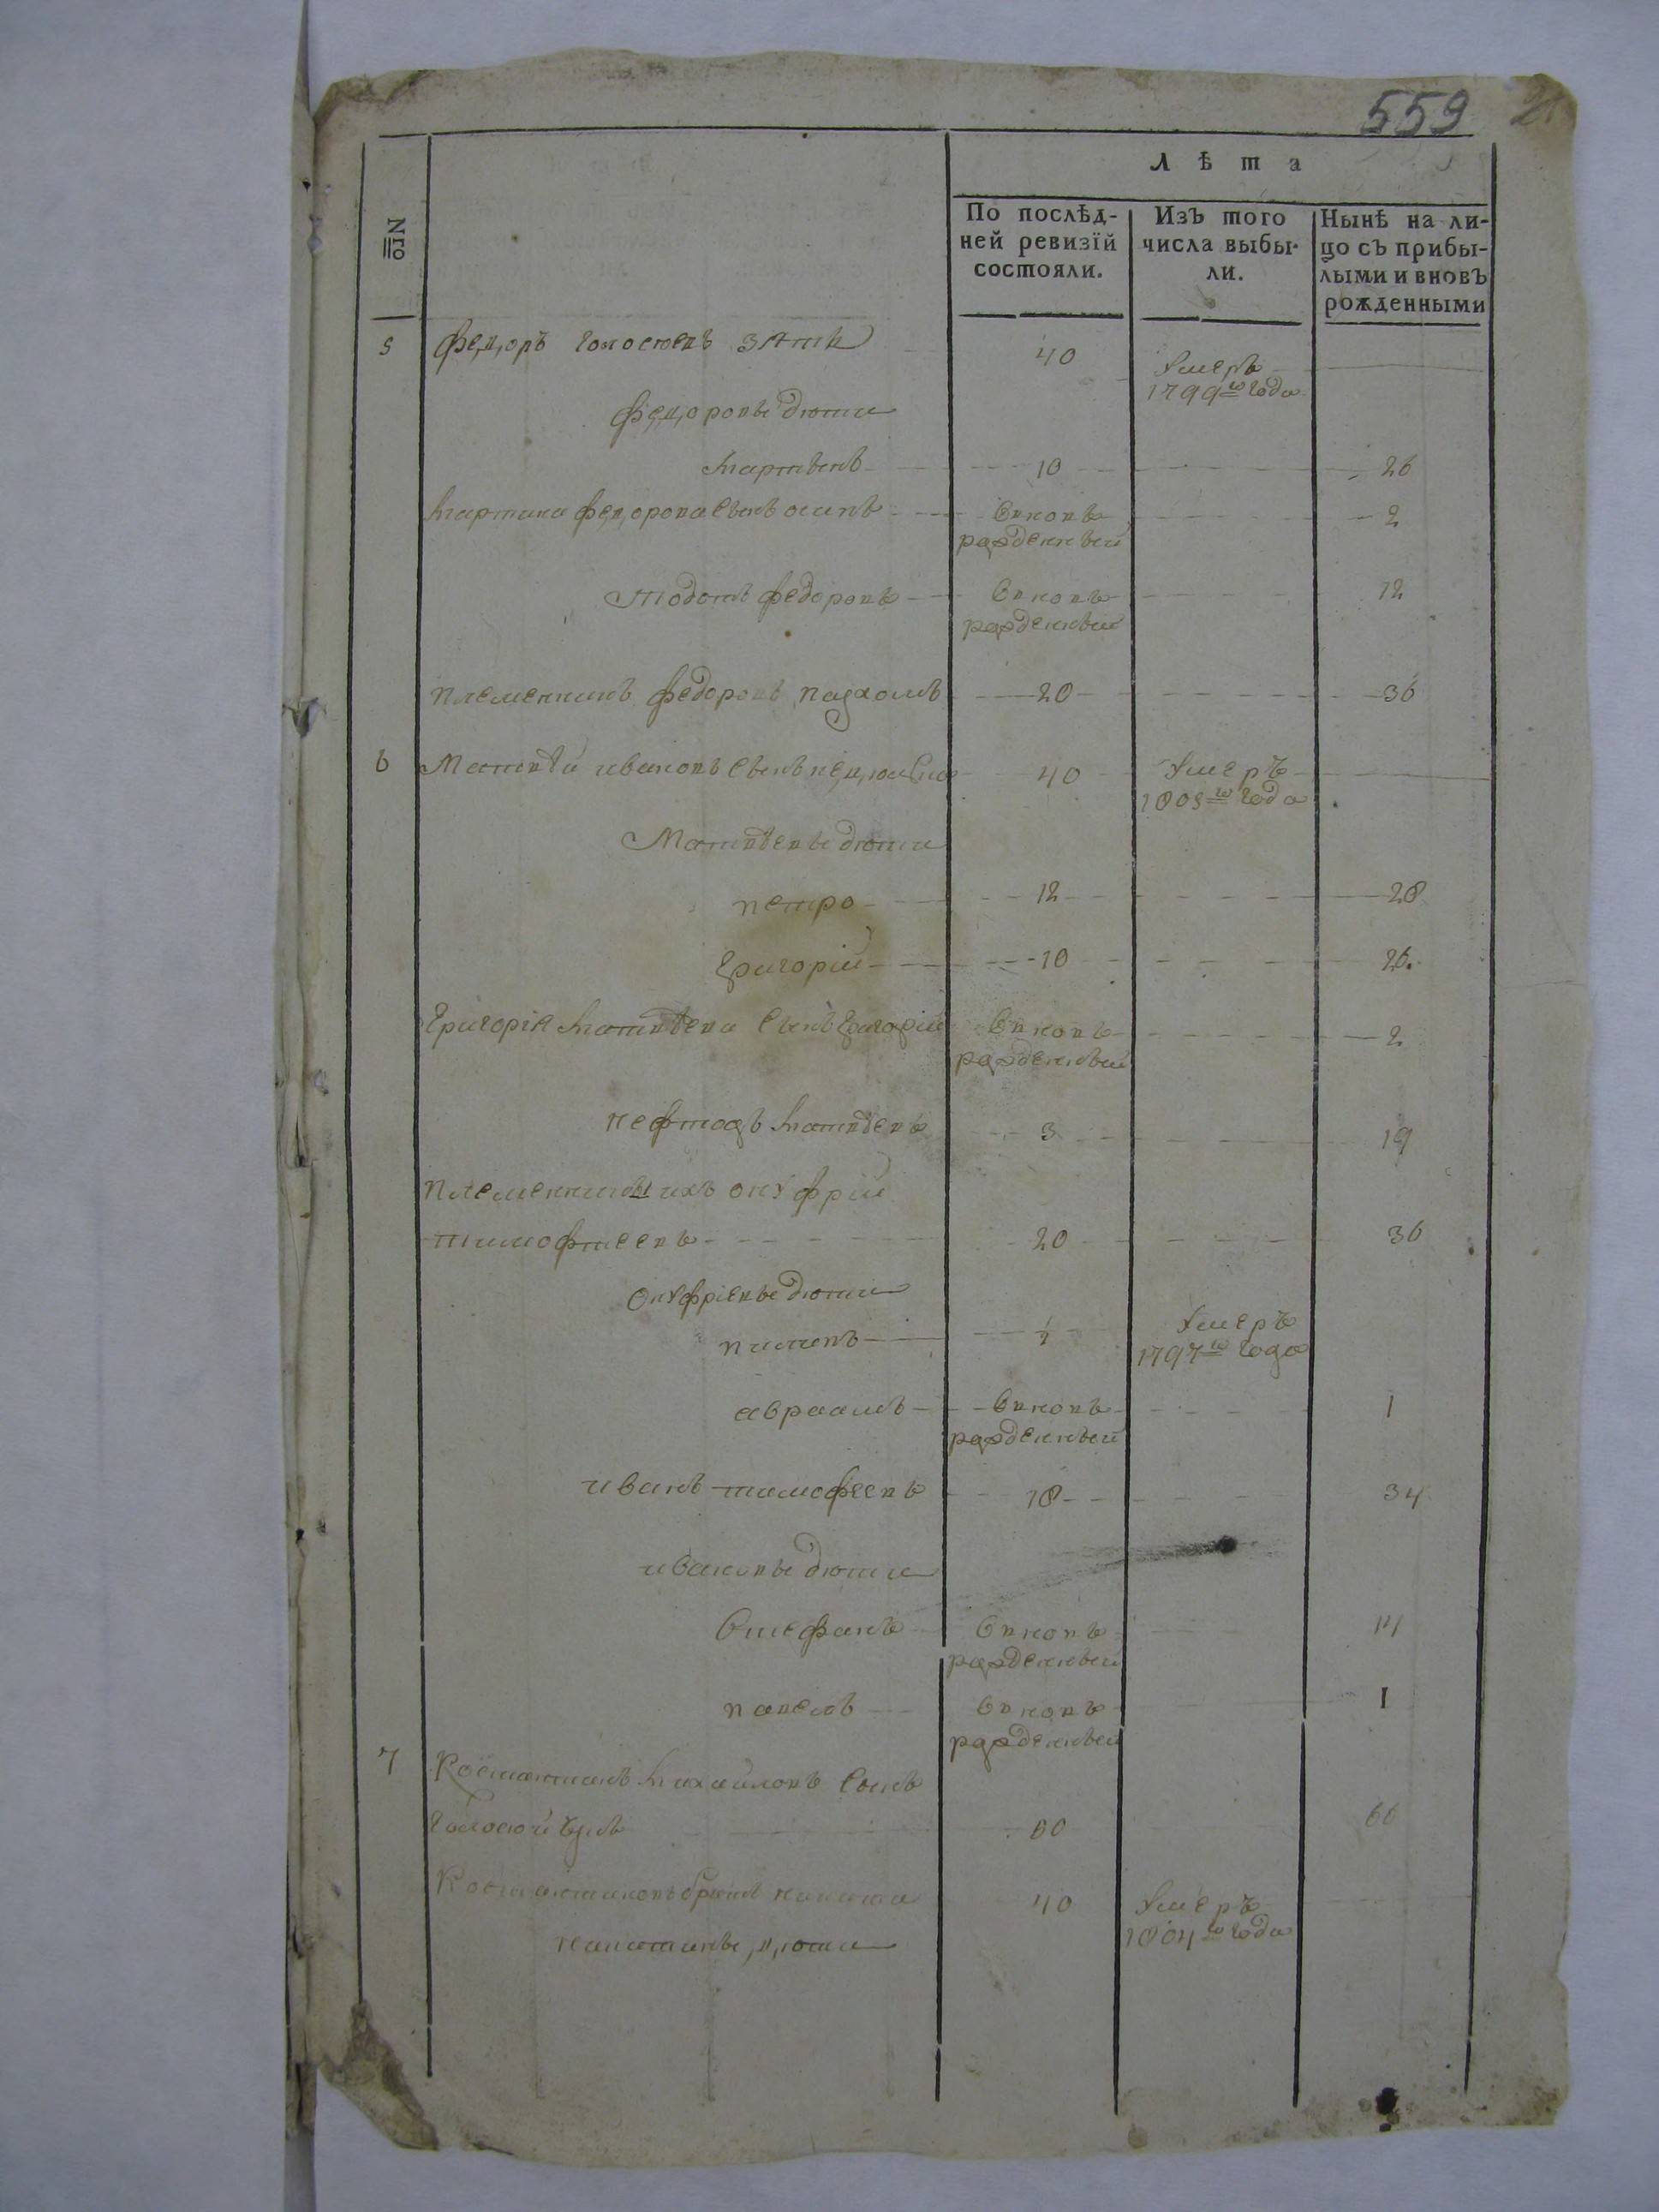 559
Лѣта
№
По послѣд-
ней ревизїй
состояли.
Изъ того
числа выбы-
ли.
Нынѣ на ли-
цо съ прибы-
лыми и вновь
рожденными
5 Федоръ зяти 40
умеръ
1799го года
Федоровы дюти
Мартынъ 10 26
Мартина Федорова сынъ осипъ вновъ 2
рожденный
Федоровъ вновъ 12
рожденный
племенникъ Федоровъ пахомъ 20 36
6 Матвѣй ивановъ сынъ 40 умеръ
1805го года
Матвѣевы дюти
петро 12 28
григорій 10 26.
григорія Матвѣева сынъ григорій вновъ 2
рожденный
Матвѣевъ 3 19
племенники ихъ онуфрій
тимофтеевъ 20 36
Онуфріевы дюти
пименъ умеръ
1797го года
авраамъ вновъ 1
рожденный
иванъ тимофеевъ 18 34
ивановы дюти
Стефанъ вновъ 14
рожденный
павелъ вновъ 1
рожденный
7 Костантинъ Михайловъ сынъ
60 66
Костантиновъ братъ никита 40 умеръ
1804го года
никитины дюти